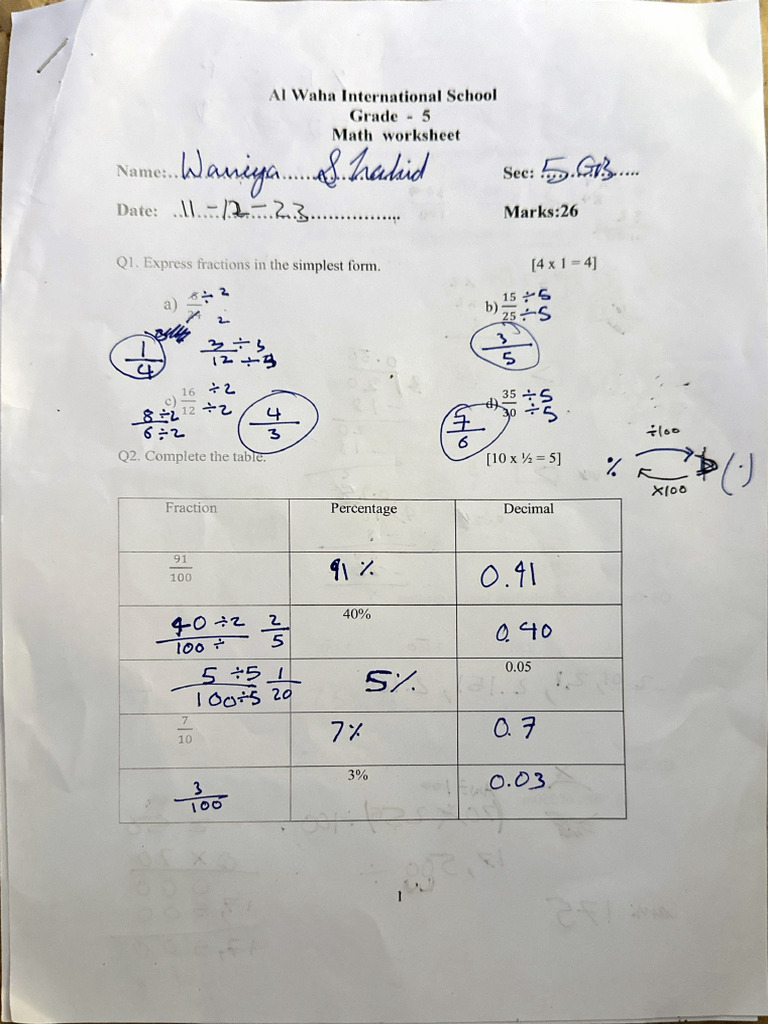 Al Waha International School
Grade - 5
Math worksheet
Name:..Waniya......Shahid Sec: 5.GB.....
Date: ..11-12-23............... Marks:26
Q1. Express fractions in the simplest form. [4 x 1 = 4]
a) ÷ 2 b) 15/25 ÷5 ÷5
2
1/4 3/12 ÷3 ÷3 3/5
c) 16/12 ÷2 ÷2 d) 35/30 ÷5 ÷5
8÷2/6÷2 4/3 7/6
÷100
Q2. Complete the table. [10 x ½ = 5] % (.)
×100
Fraction Percentage Decimal
91/100 91% 0.91
40÷2/100÷ 2/5 40% 0.40
5÷5/100÷5 1/20 5% 0.05
7/10 7% 0.7
3/100 3% 0.03
1